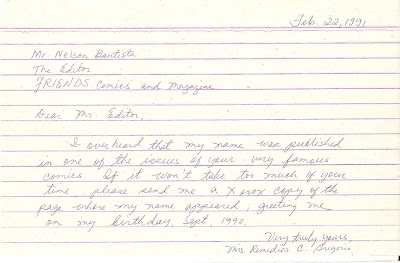 Feb. 22, 1991
Mr. Nelson Bautista
The Editor
FRIENDS Comics and Magazine
Dear Mr. Editor,
I overheard that my name was published
in one of the issues of your very famous
comics. If it won't take too much of your
time, please send me a Xerox copy of the
page where my name appeared, greeting me
on my birthday, Sept. 1990.
Very truly yours,
Mrs. Remedios C.